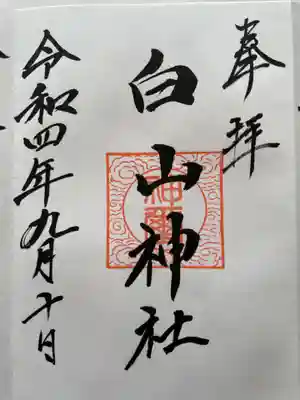 奉拝
白山神社
令和四年九月十日